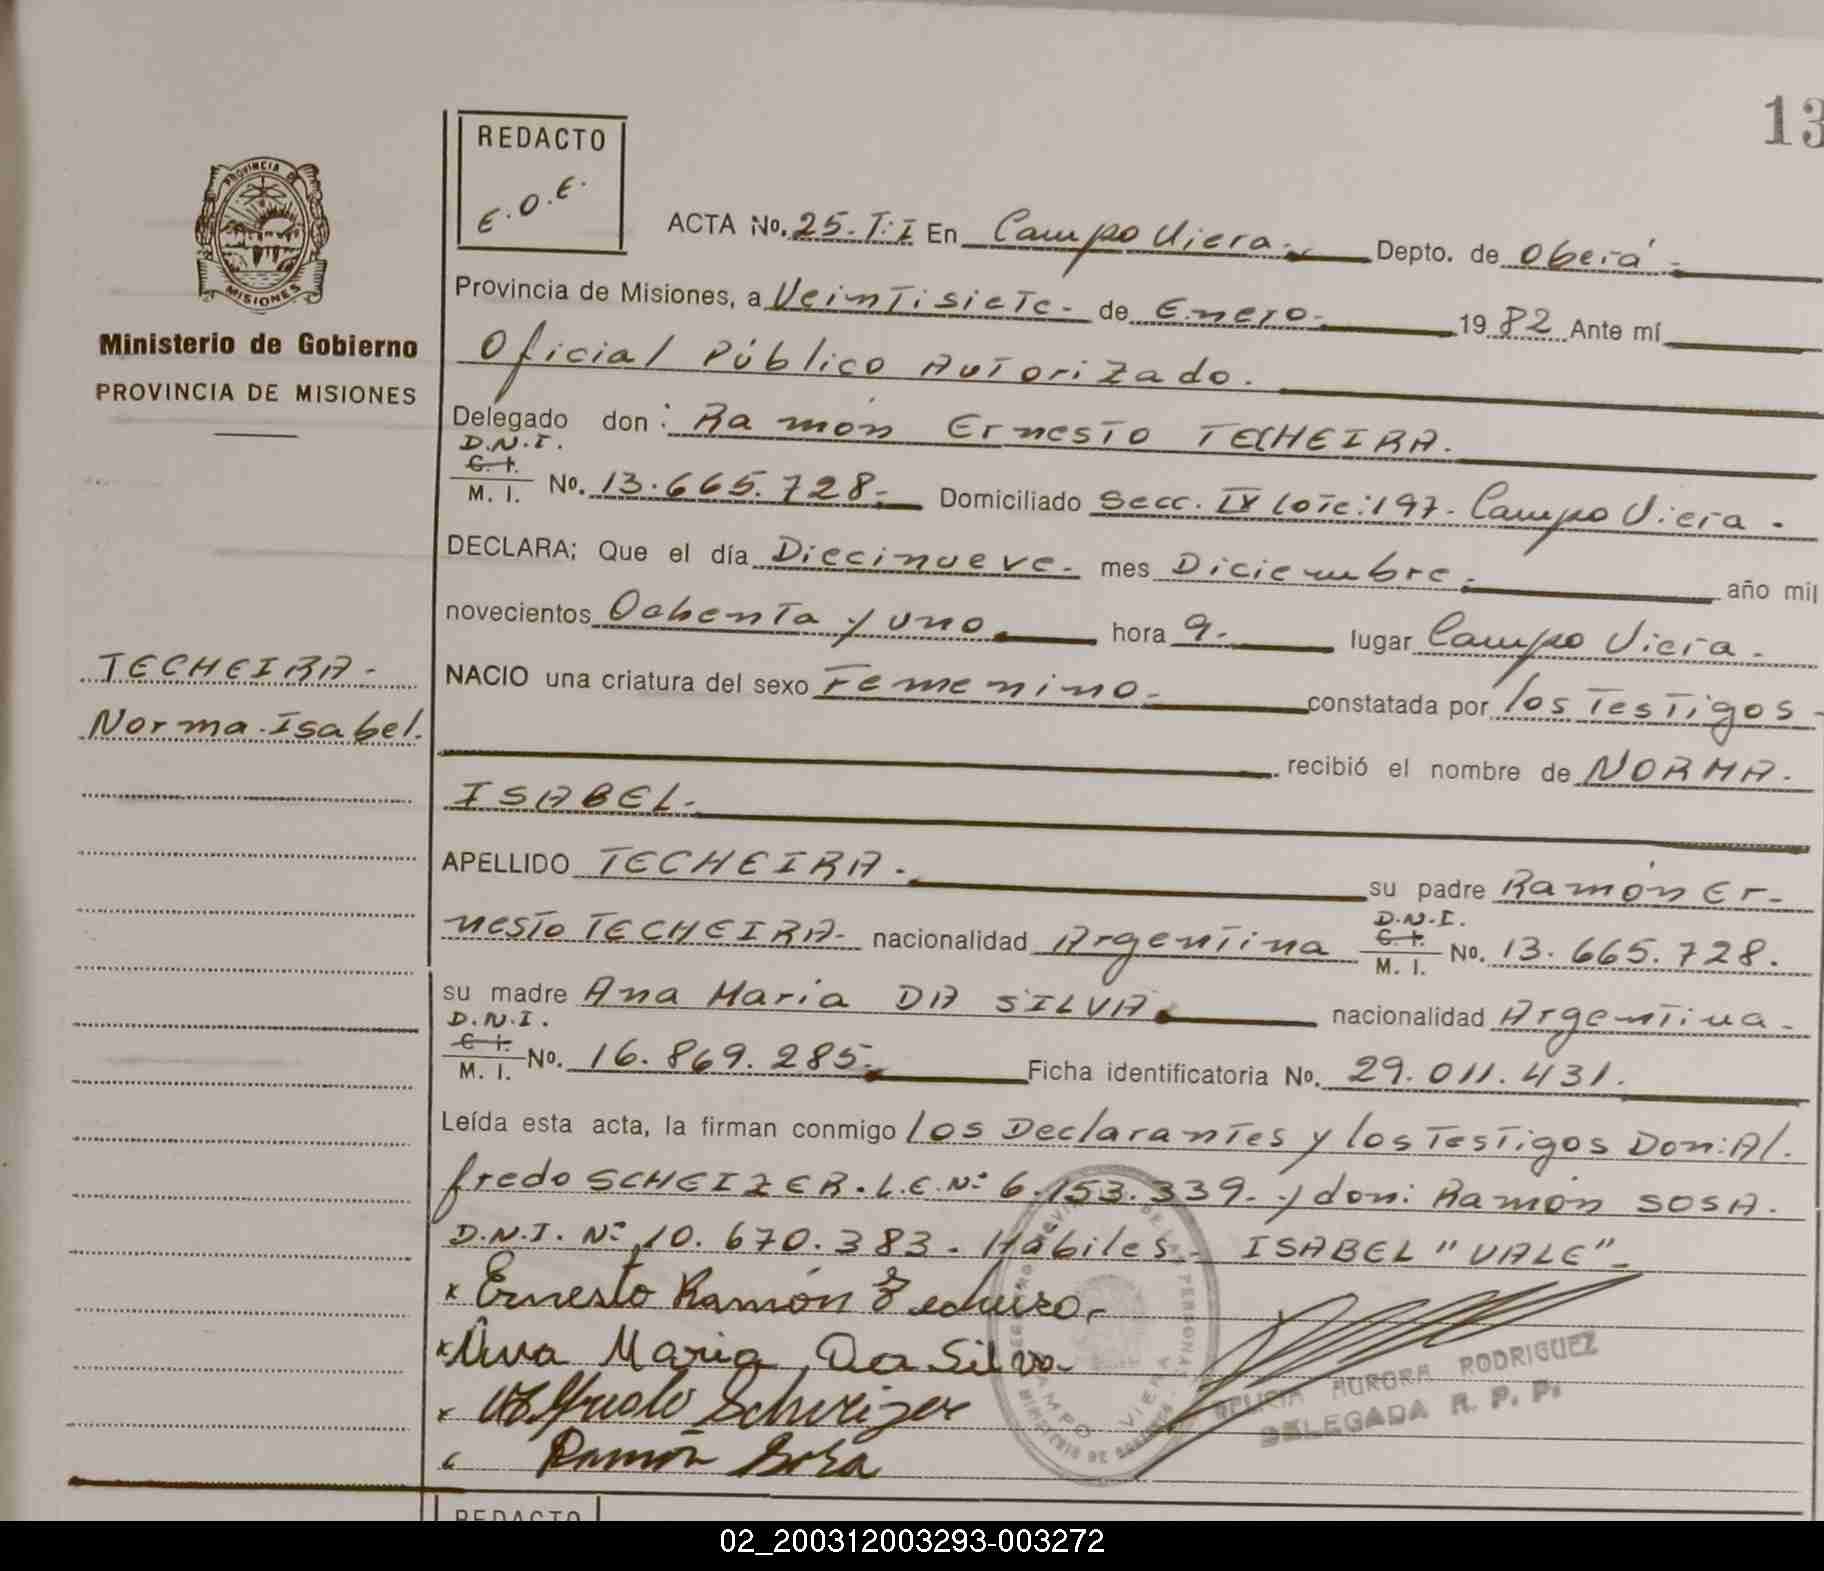 13
REDACTO
E.O.E.
PROVINCIA DE
MISIONES
Ministerio de Gobierno
PROVINCIA DE MISIONES
TECHEIRA-
Norma Isabel.
ACTA No. 25. T: I En Campo Viera. Depto. de Oberá.
Provincia de Misiones, a Veintisiete- de Enero. 1982 Ante mí
Oficial Público Autorizado.
Delegado don: Ramón Ernesto TECHEIRA.
D.N.I.
C. I.
M. I. No. 13.665.728. Domiciliado Secc. IX Lote:197. Campo Viera.
DECLARA; Que el día Diecinueve. mes Diciembre. año mil
novecientos Ochenta y uno hora 9. lugar Campo Viera.
NACIO una criatura del sexo Femenino. constatada por los Testigos-
recibió el nombre de NORMA.
ISABEL.
APELLIDO TECHEIRA. su padre Ramón Er-
nesto TECHEIRA- nacionalidad Argentina D.N.I. C. I. M. I. No. 13.665.728.
su madre Ana Maria DA SILVA nacionalidad Argentina-
D.N.I.
C. I.
M. I. No. 16.869.285. Ficha identificatoria No. 29.011.431.
Leída esta acta, la firman conmigo los Declarantes y los Testigos Don: Al.
fredo SCHEIZER. L.E.Nº 6.153.339. y don: Ramón SOSA.
D.N.I. Nº 10.670.383. Hábiles- ISABEL "VALE"-
x Ernesto Ramón Techeira
x Ana Maria Da Silva
x Alfredo Schweizer
Ramón Sosa
CAMPO VIERA
AURORA RODRIGUEZ
DELEGADA R. P. P.
REDACTO
02_200312003293-003272